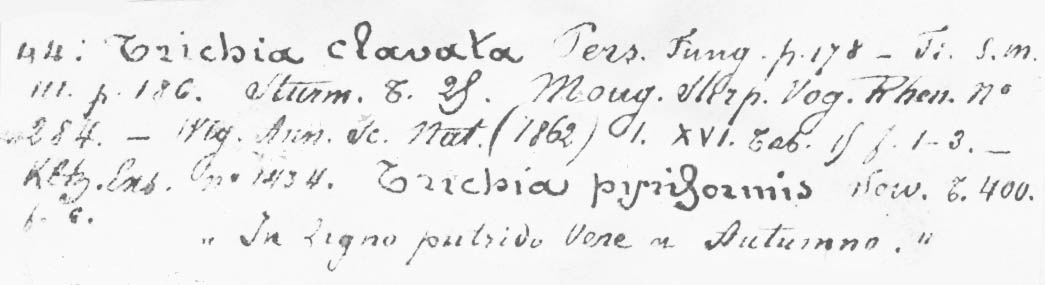 44: Trichia clavata Pers. Fung. p. 178 – Fr. S. m.
III. p. 186. Sturm. T. 25. Moug. Stirp. Vog. Rhen. No
284. – Wig. Ann. Sc. Nat. (1862) t. XVI. Tab. 15 f. 1–3. –
Rbh. no 1434. Trichia pyriformis Sow. T. 400.
f. 6.
„ In Ligno putrido Vere u Autumno. "